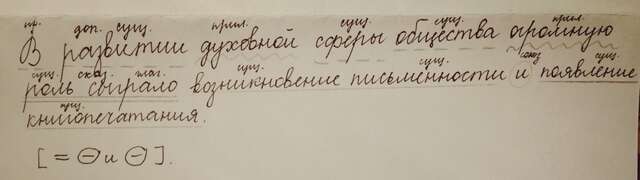 пр. доп. сущ. прил. сущ. сущ. прил.
В развитии духовной сферы общества огромную
сущ. сказ. глаг. сущ. сущ. союз сущ.
роль сыграло возникновение письменности и появление
сущ.
книгопечатания.
[ = ⊖ и ⊖ ].